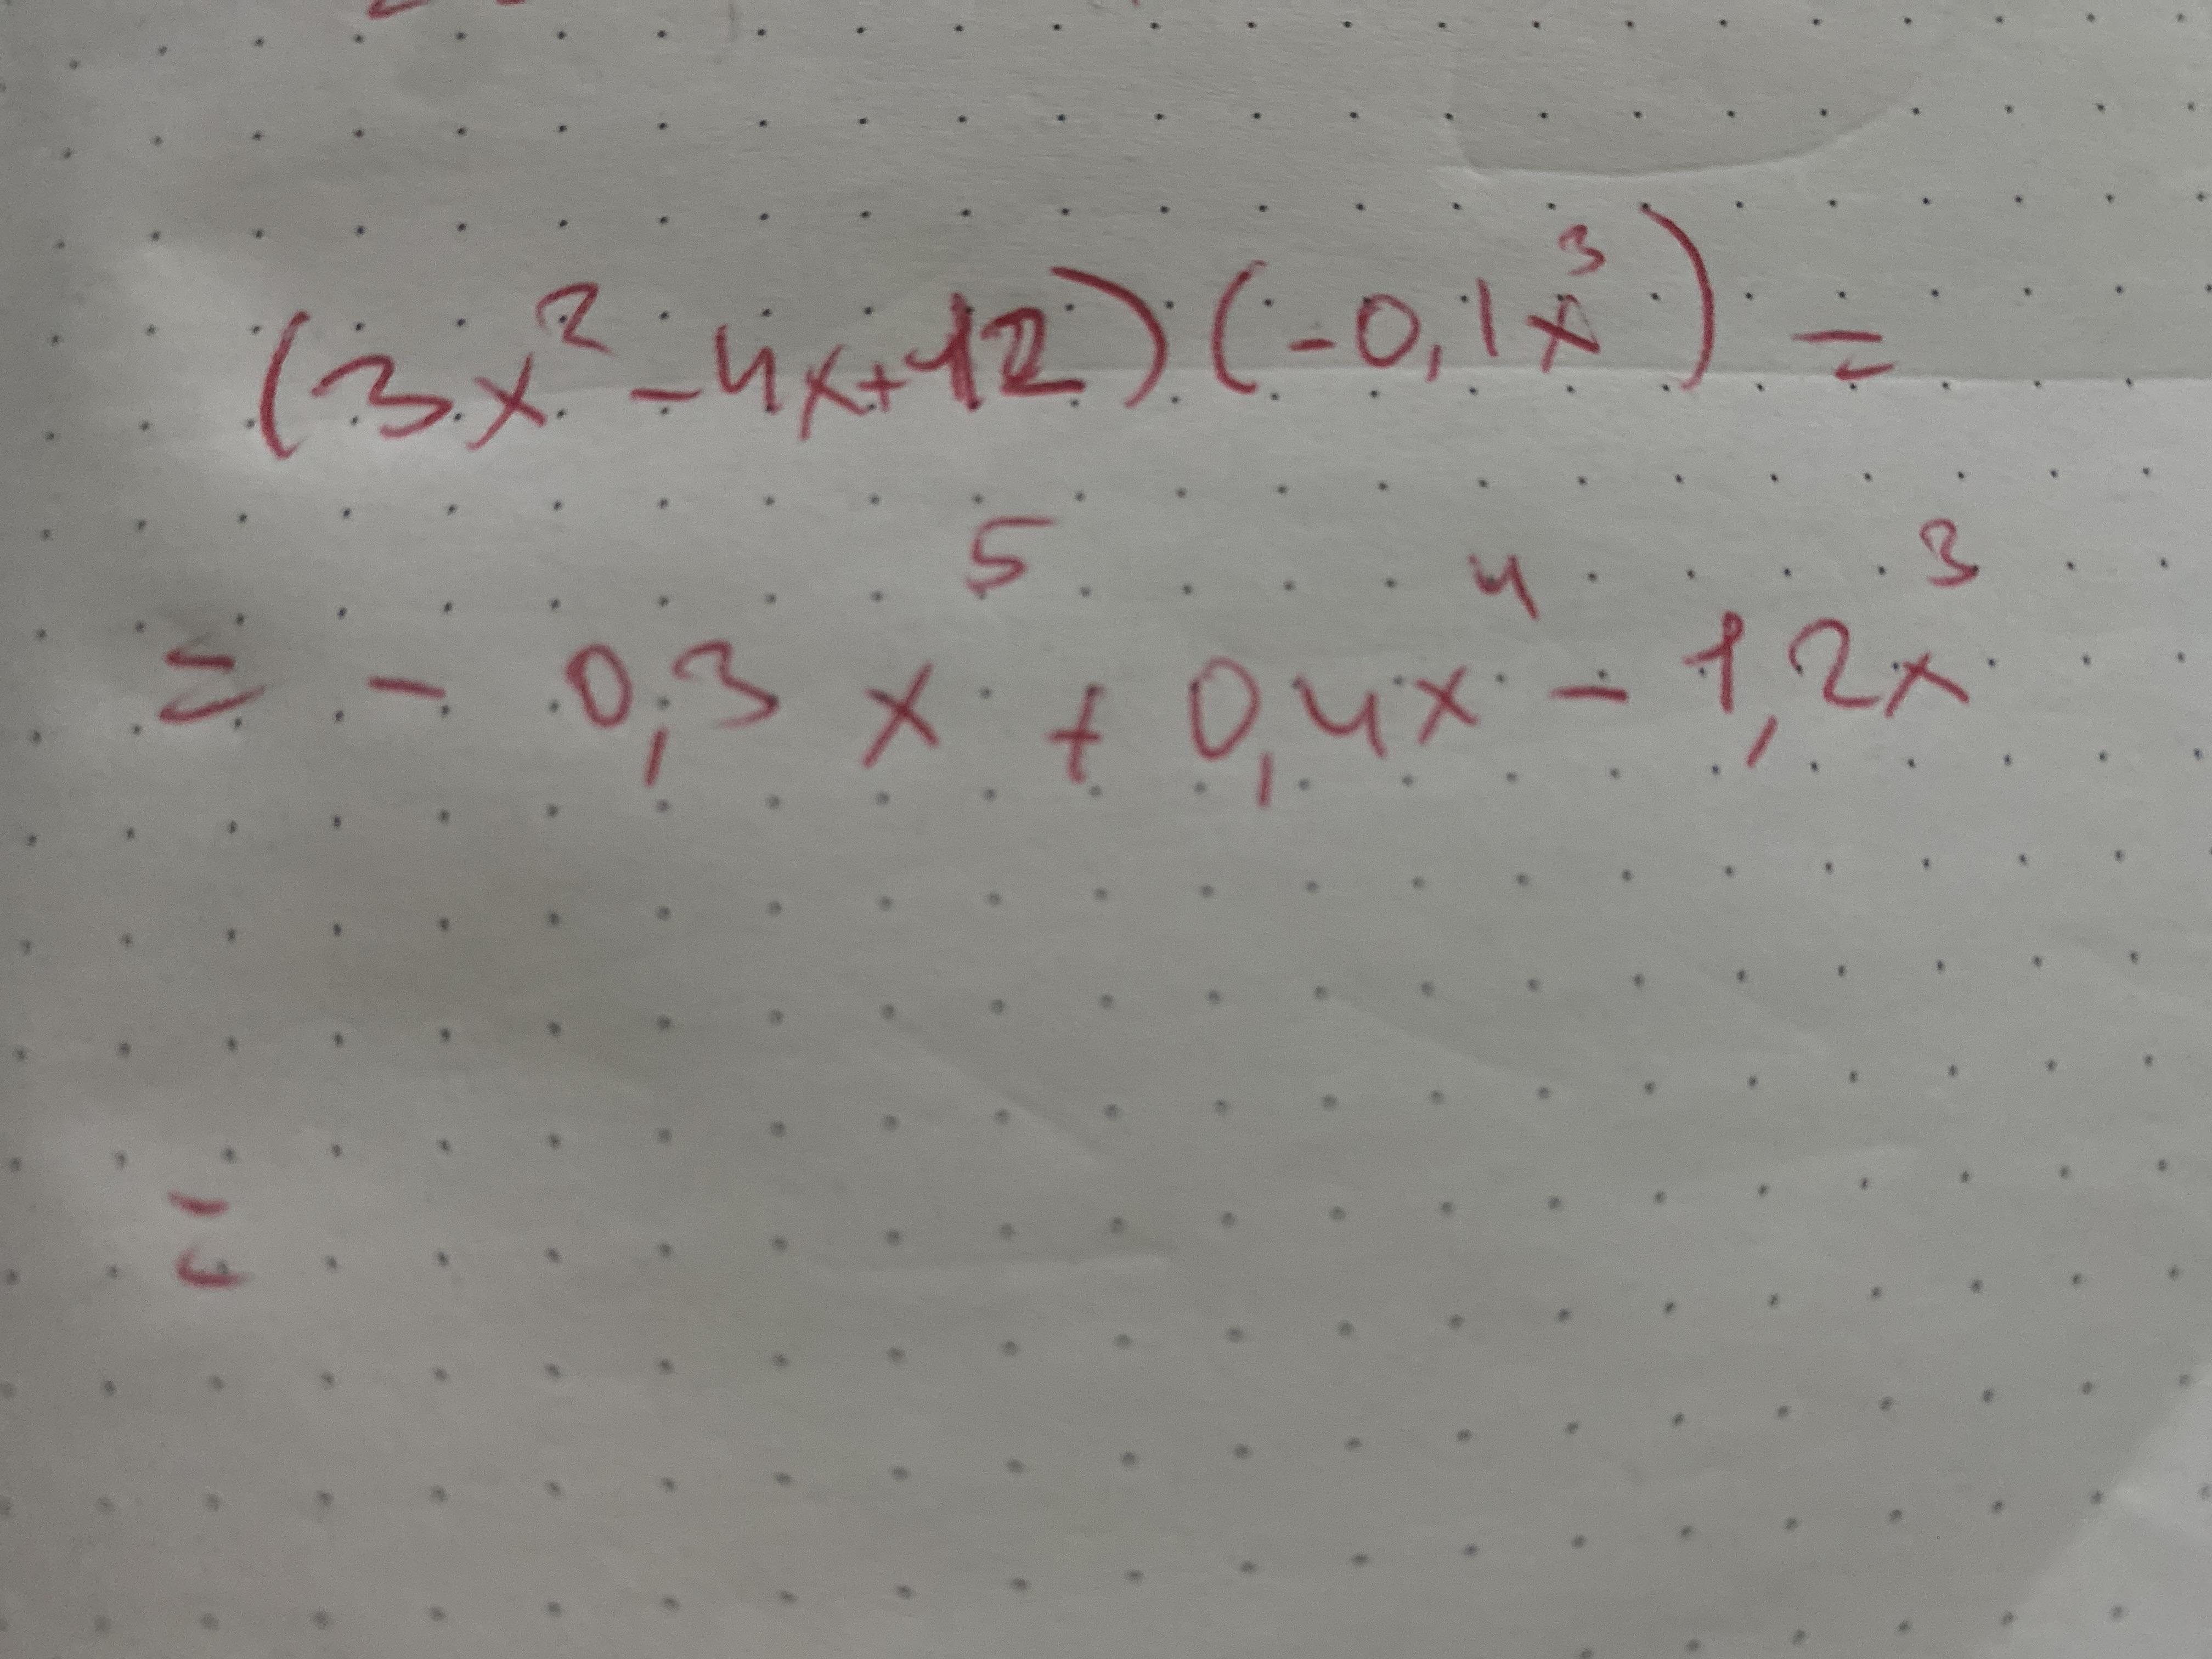 (3x² - 4x + 12)(-0,1x³) =
= - 0,3x⁵ + 0,4x⁴ - 1,2x³
=